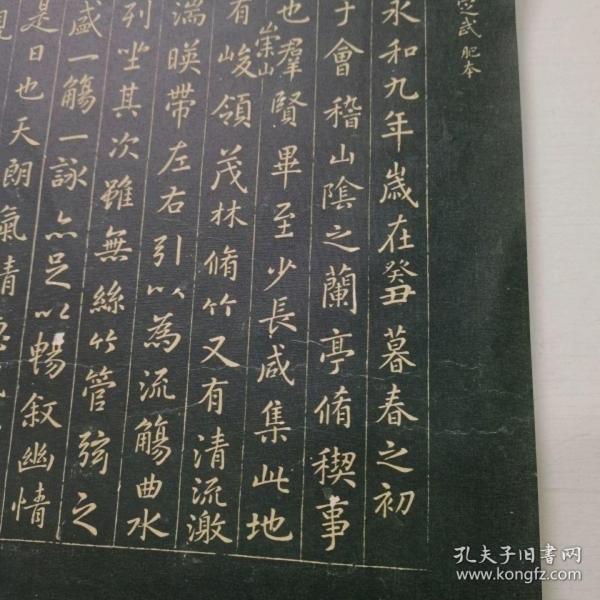 定武肥本
永和九年歲在癸丑暮春之初
于會稽山陰之蘭亭脩稧事
也群賢畢至少長咸集此地
有崇山峻領茂林脩竹又有清流激
湍暎帶左右引以為流觴曲水
列坐其次雖無絲竹管弦之
盛一觴一詠亦足以暢叙幽情
是日也天朗氣清
孔夫子旧书网
www.kongfz.com